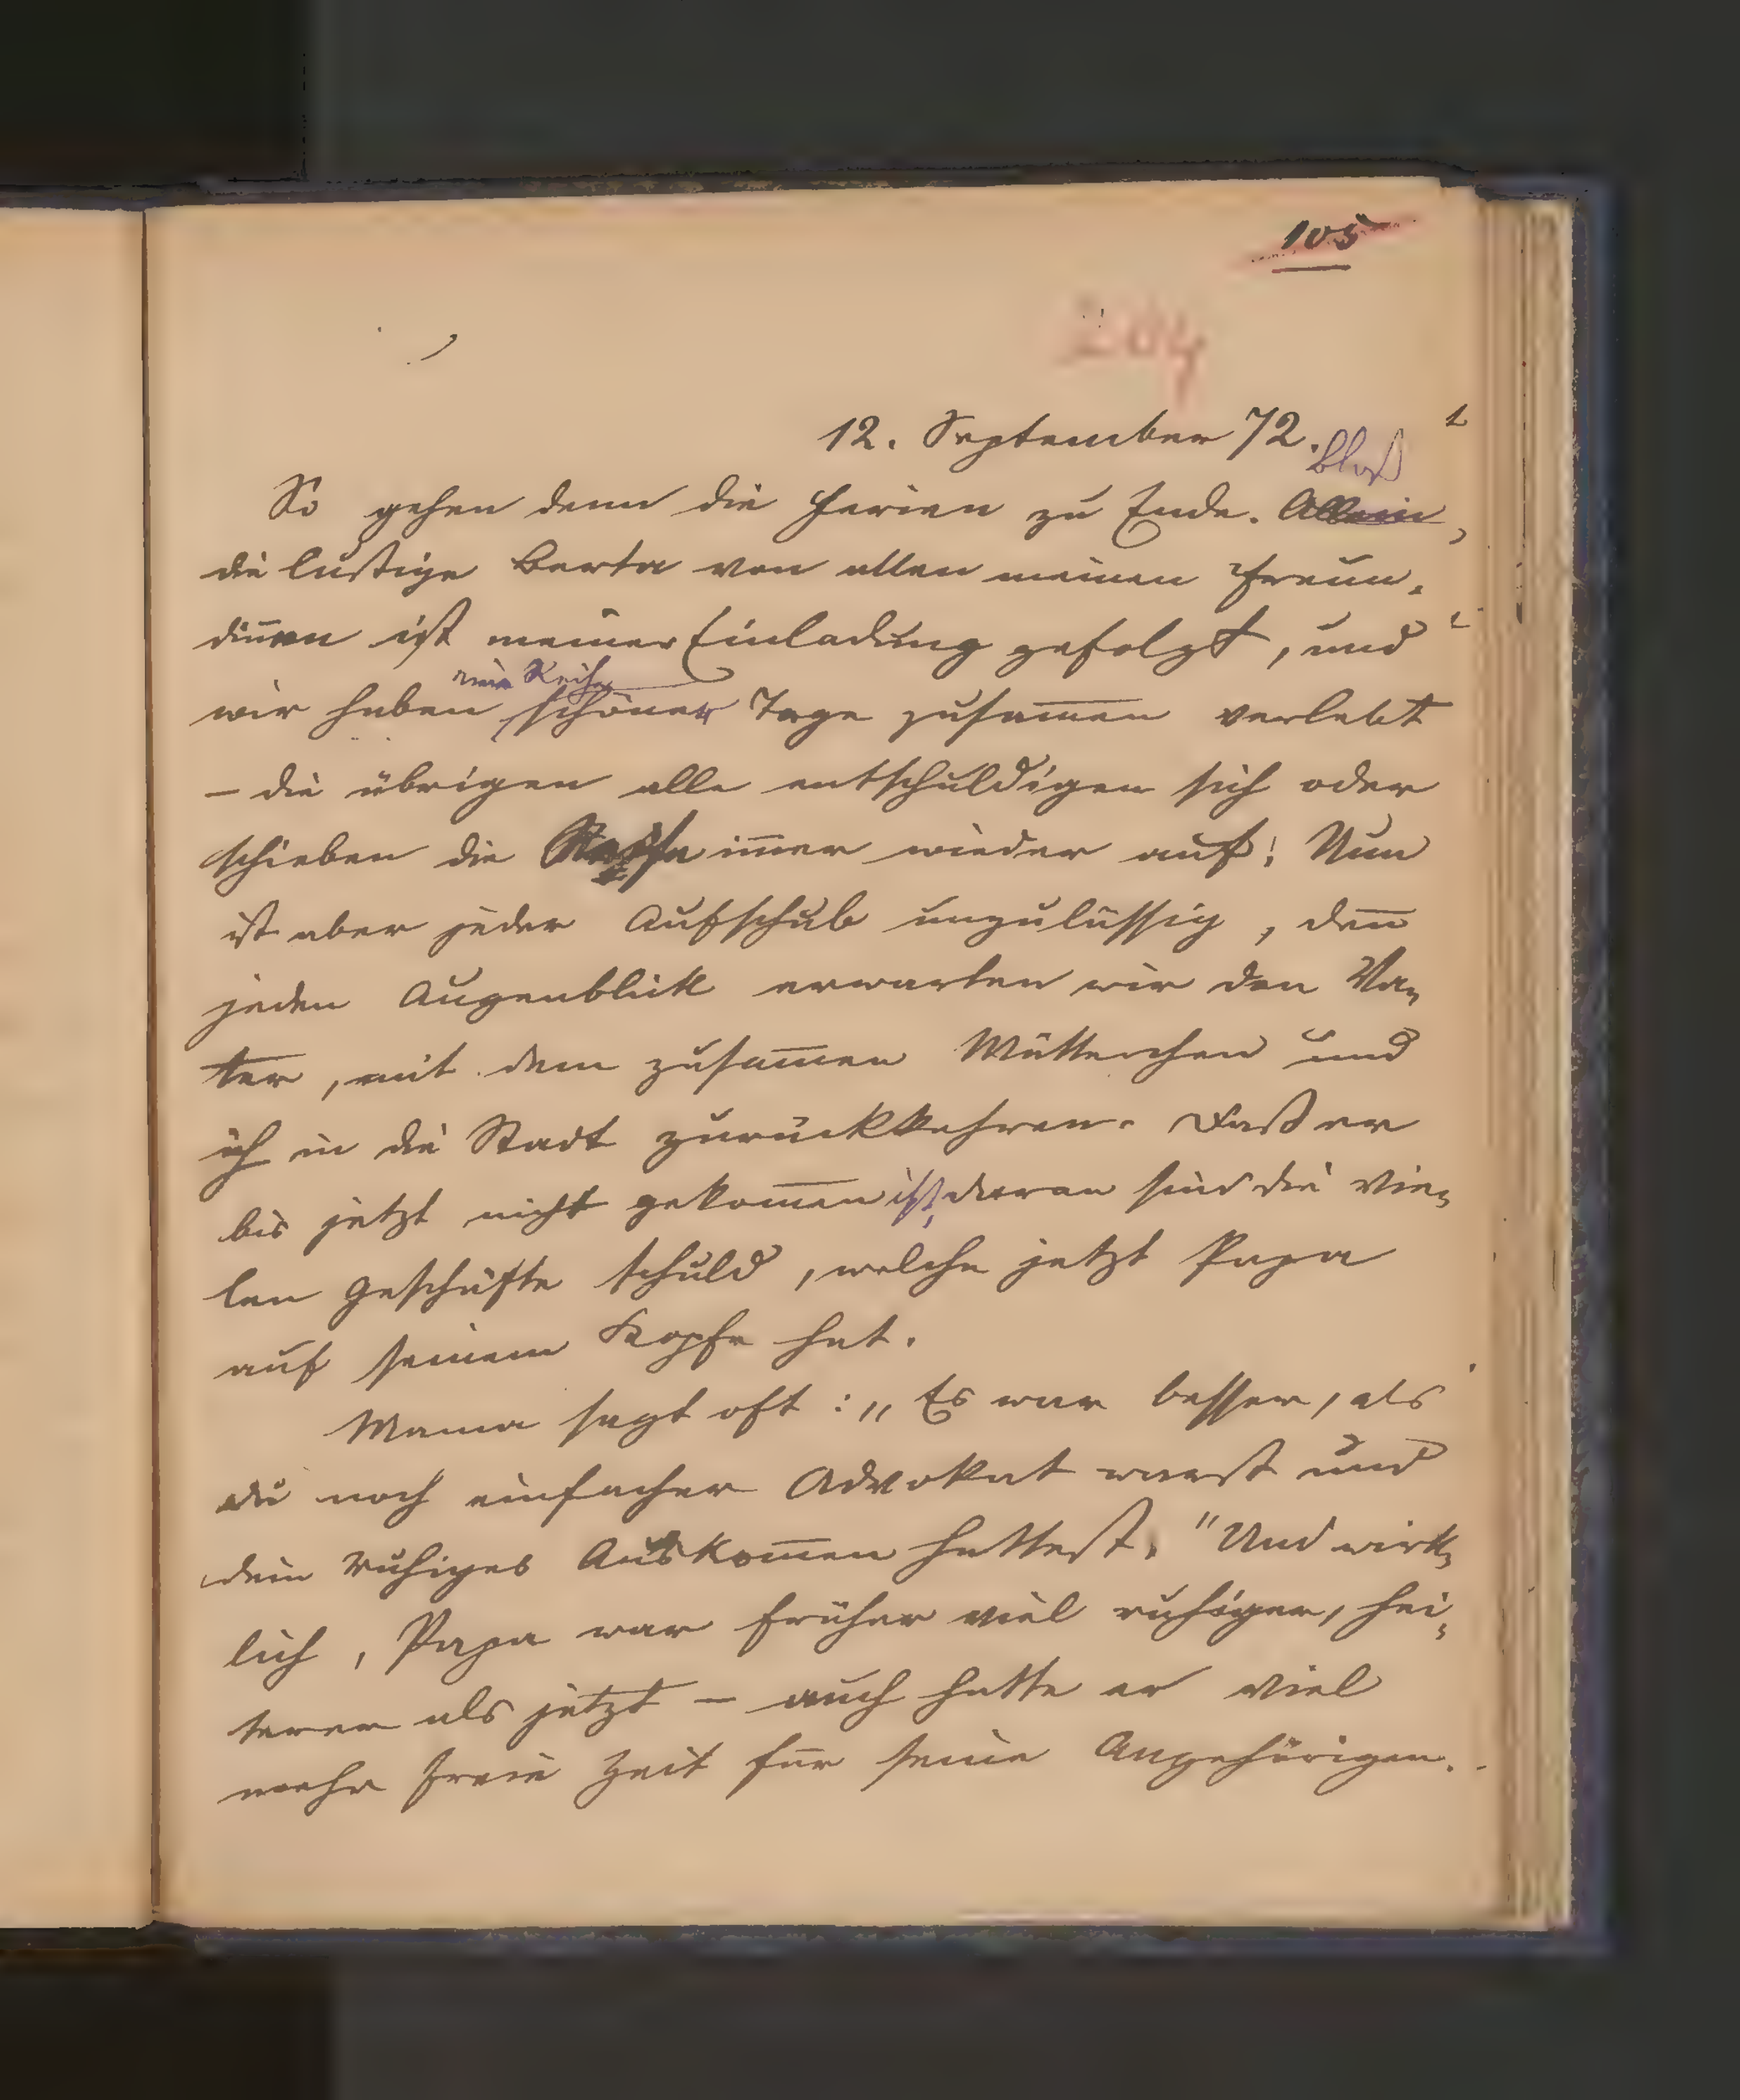 105
204
12. September 72.
bloß
So gehen denn die Ferien zu Ende. Allein,
die lustige Berta von allen meinen Freun-
din̅en ist meiner Einladung gefolgt, und
eine Reihe
wir haben schöner Tage zusam̅en verlebt
– die übrigen alle entschuldigen sich oder
schieben die Reise im̅er wieder auf! Nun
ist aber jeder Aufschub unzulässig, den̅
jeden Augenblick erwarten wir den Va-
ter, mit dem zusam̅en Mütterchen und
ich in die Stadt zurückkehren. Daß er
bis jetzt nicht gekom̅en ist, daran sind die vie-
len Geschäfte schuld, welche jetzt Papa
auf seinem Kopfe hat.
Mama sagt oft: „Es war besser, als
du noch einfacher Advokat warst und
dein ruhiges Auskom̅en hattest." Und wirk-
lich, Papa war früher viel ruhiger, hei-
terer als jetzt – auch hatte er viel
mehr freie Zeit für seine Angehörigen.